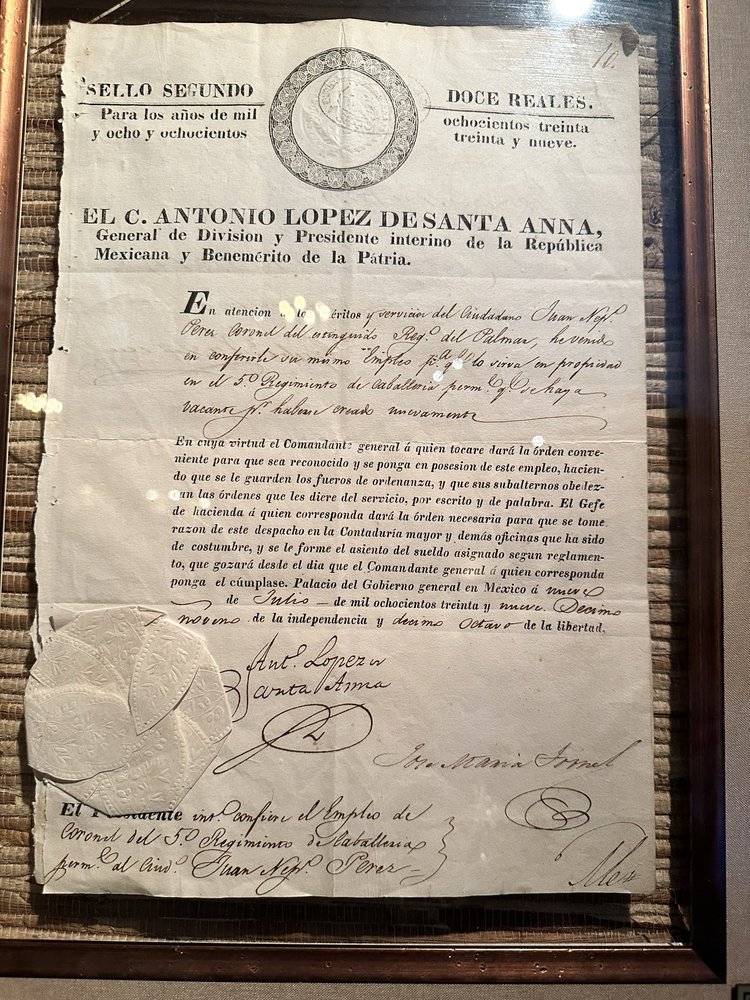 10.
SELLO SEGUNDO
Para los años de mil
y ocho y ochocientos
DOCE REALES.
ochocientos treinta
treinta y nueve.
EL C. ANTONIO LOPEZ DE SANTA ANNA,
General de Division y Presidente interino de la República
Mexicana y Benemérito de la Pátria.
En atencion á los méritos y servicios del Ciudadano Juan Nepº.
Perez Coronel del extinguido Regº. del Palmar, he venido
en conferirle su mismo Empleo pª. qº. lo sirva en propiedad
en el 5º Regimiento de Caballeria permᵗᵉ qº. se haya
vacante pʳ. haberse creado nuevamente
En cuya virtud el Comandante general á quien tocare dará la órden conve-
niente para que sea reconocido y se ponga en posesion de este empleo, hacien-
do que se le guarden los fueros de ordenanza, y que sus subalternos obedez-
can las órdenes que les diere del servicio, por escrito y de palabra. El Gefe
de hacienda á quien corresponda dará la órden necesaria para que se tome
razon de este despacho en la Contaduría mayor y demás oficinas que ha sido
de costumbre, y se le forme el asiento del sueldo asignado segun reglamen-
to, que gozará desde el dia que el Comandante general á quien corresponda
ponga el cúmplase. Palacio del Gobierno general en México á nueve
de Julio de mil ochocientos treinta y nueve. Decimo
noveno de la independencia y decimo octavo de la libertad.
Antº. Lopez de
Santa Anna
Jose Maria Tornel
El Presidente intº. confiere el Empleo de
Coronel del 5º Regimiento de Caballeria
permᵗᵉ al Ciudº. Juan Nepº. Perez